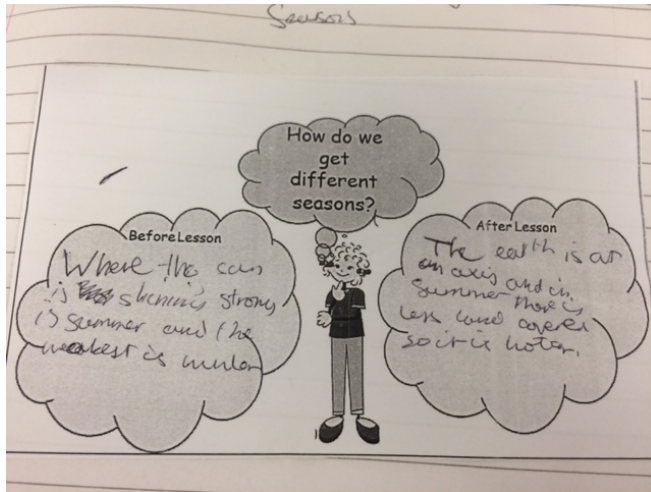 Seasons
How do we
get
different
seasons?
Before Lesson
Where the sun
is shining strong
is summer and the
weakest is winter
After Lesson
The earth is at
an axis and in
Summer there is
less land covered
so it is hotter.